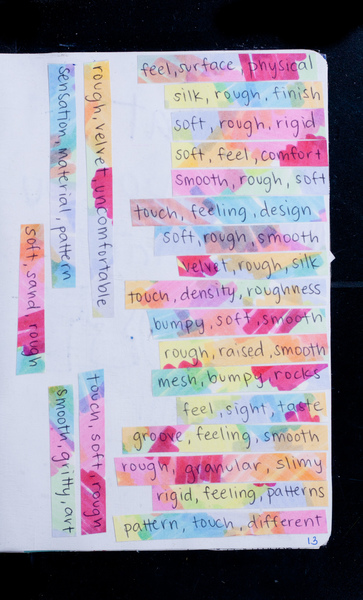 feel, surface, physical
silk, rough, finish
soft, rough, rigid
soft, feel, comfort
smooth, rough, soft
touch, feeling, design
soft, rough, smooth
velvet, rough, silk
touch, density, roughness
bumpy, soft, smooth
rough, raised, smooth
mesh, bumpy, rocks
feel, sight, taste
groove, feeling, smooth
rough, granular, slimy
rigid, feeling, patterns
pattern, touch, different
rough, velvet, uncomfortable
sensation, material, pattern
soft, sand, rough
touch, soft, rough
smooth, gritty, art
13